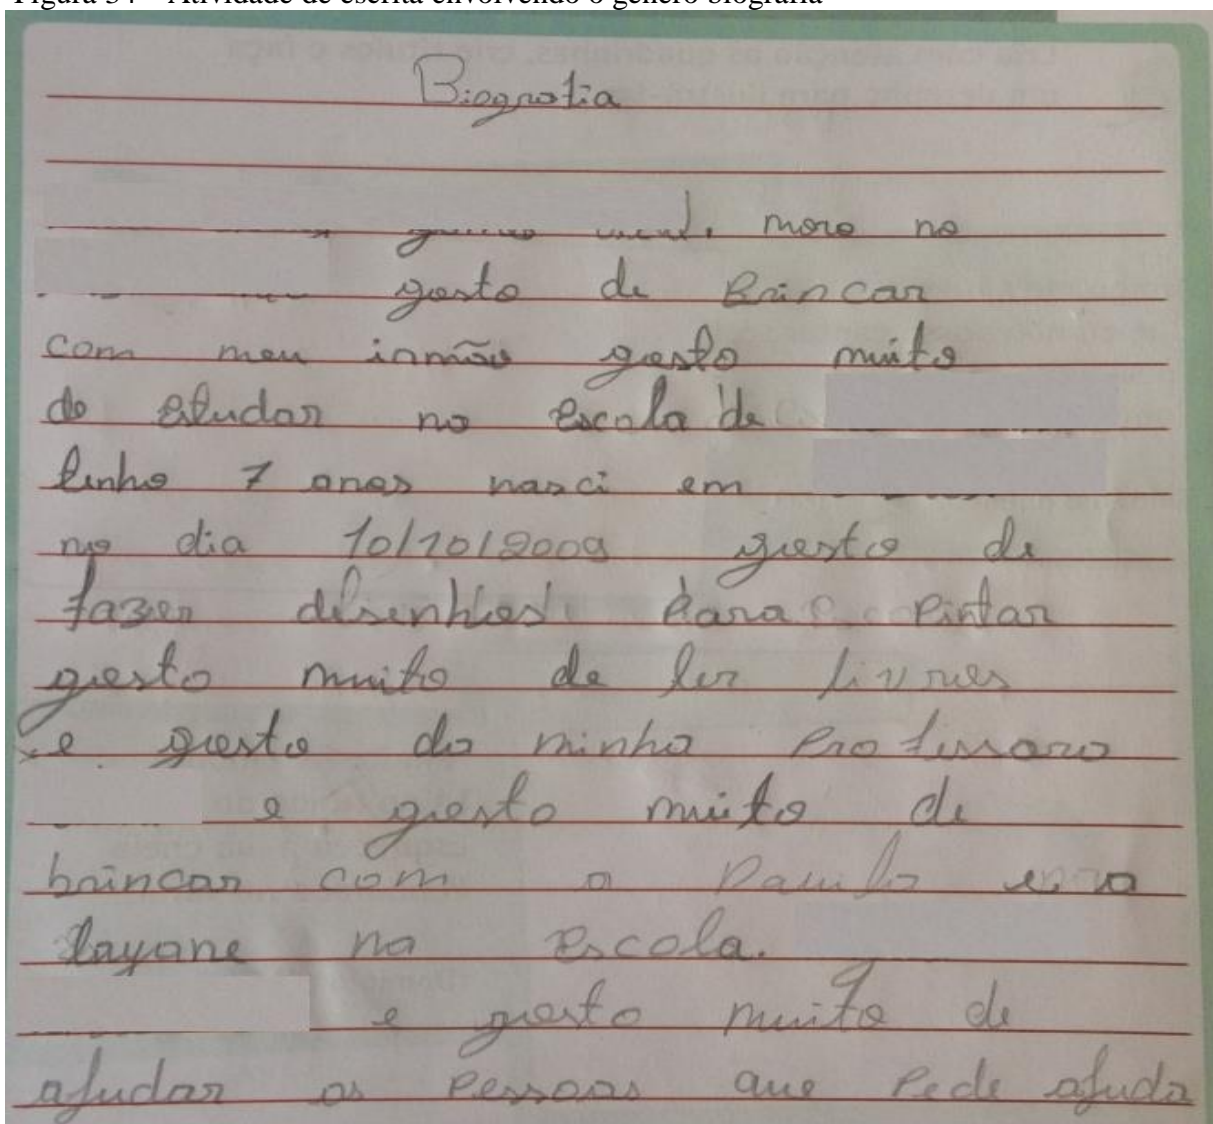 Figura 34 – Atividade de escrita envolvendo o gênero biografia
Biografia
moro no
gosto de Brincar
com meu irmão gosto muito
de estudar na escola de
tenho 7 anos nasci em
no dia 10/10/2009 gosto de
fazer desenhos para Pintar
gosto muito de ler livros
e gosto da minha Professora
e gosto muito de
brincar com a Paula e a
layane na escola.
e gosto muito de
ajudar as Pessoas que Pede ajuda